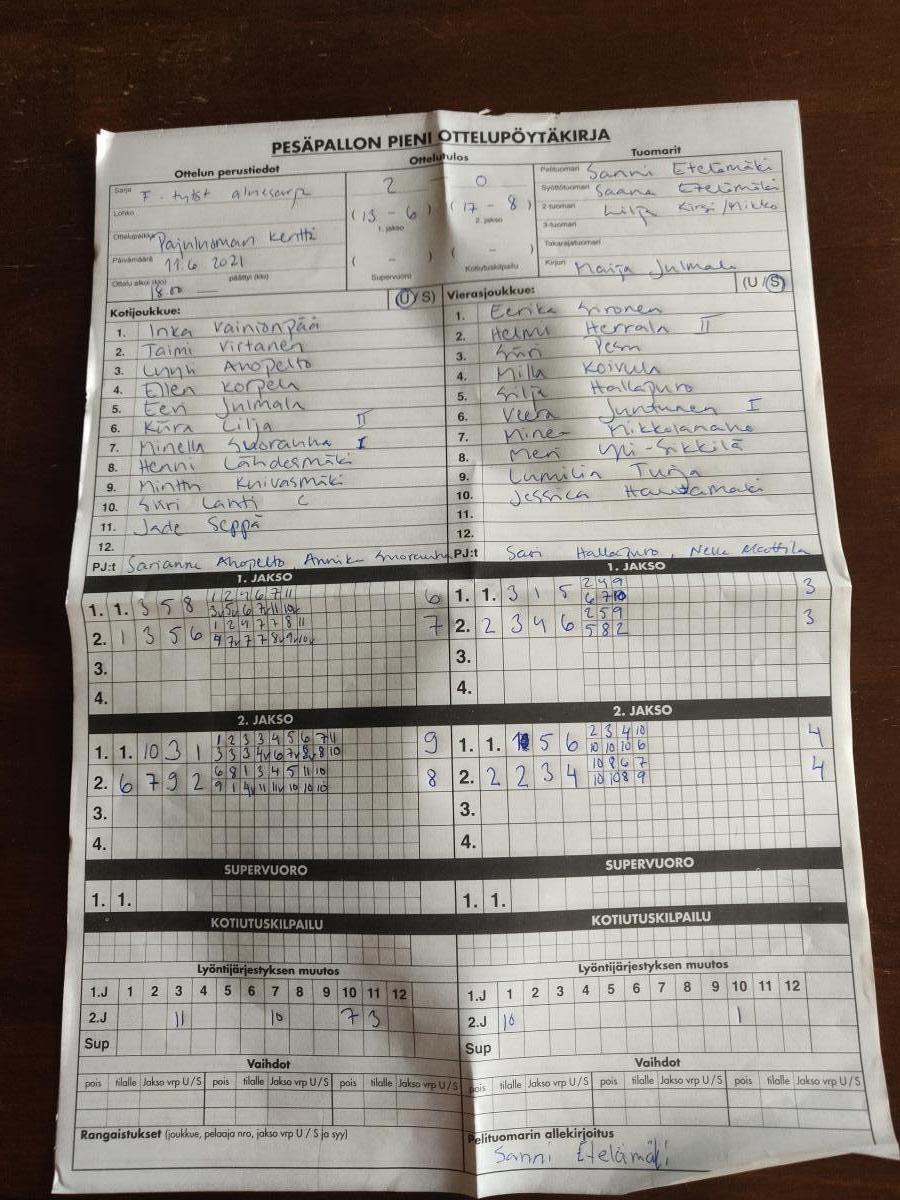 PESÄPALLON PIENI OTTELUPÖYTÄKIRJA
Ottelun perustiedot
Sarja F-tytöt aluesarja
Lohko
Ottelupaikka Pajuluoman kenttä
Päivämäärä 11.6 2021
Ottelu alkoi (klo) 18.00 päättyi (klo)
Ottelutulos
2 – 0
(13 – 6) (17 – 8)
1. jakso 2. jakso
( – ) ( – )
Supervuoro Kotiutuskilpailu
Tuomarit
Pelituomari Sanni Etelämäki
Syöttötuomari Saana Etelämäki
2-tuomari Lilja Kirsi/Mikko
3-tuomari
Takarajatuomari
Kirjuri Maija Julmala
Kotijoukkue: (U/S)
1. Inka Vainionpää
2. Taimi Virtanen
3. Ahopelto
4. Ellen Korpela
5. Eevi Julmala
6. Kiira Lilja II
7. Minella Suoranha I
8. Henni Lähdesmäki
9. Minttu Knivasmäki
10. Siiri Lahti C
11. Jade Seppä
12.
PJ:t Sarianne Ahopelto, Annika Suoranha
Vierasjoukkue: (U/S)
1. Eerika Sironen
2. Helmi Herrala II
3. Siiri Pesu
4. Milla Koivula
5. Silja Hallapuro
6. Veera Juntunen I
7. Minea Mikkolanaho
8. Meri Yli-Sikkilä
9. Lumilia Turja
10. Jessica Hautamäki
11.
12.
PJ:t Sari Hallapuro, Nelle Maattila
1. JAKSO
1. 1. 3 5 8 1 2 4 6 7 11 6
3v 5v 6 7v 11 10v
2. 1 3 5 6 1 2 4 7 7 8 11 7
4 7v 7 7 8v 9v 10v
3.
4.
1. JAKSO
1. 1. 3 1 5 2 4 9 3
6 7 10
2. 2 3 4 6 2 5 9 3
5 8 2
3.
4.
2. JAKSO
1. 1. 10 3 1 1 2 3 3 4 5 6 7 11 9
3 3 3 4v 6 7v 8v 8 10
2. 6 7 9 2 6 8 1 3 4 5 11 10 8
9 1 4v 11 11v 10 10 10
3.
4.
2. JAKSO
1. 1. 5 6 2 3 4 10 4
10 10 10 6
2. 2 2 3 4 10 8 6 7 4
10 10 8 9
3.
4.
SUPERVUORO
1. 1.
SUPERVUORO
1. 1.
KOTIUTUSKILPAILU
KOTIUTUSKILPAILU
Lyöntijärjestyksen muutos
1.J 1 2 3 4 5 6 7 8 9 10 11 12
2.J 11 10 7 3
Sup
Lyöntijärjestyksen muutos
1.J 1 2 3 4 5 6 7 8 9 10 11 12
2.J 10 1
Sup
Vaihdot
pois tilalle Jakso vrp U/S pois tilalle Jakso vrp U/S pois tilalle Jakso vrp U/S
Vaihdot
pois tilalle Jakso vrp U/S pois tilalle Jakso vrp U/S pois tilalle Jakso vrp U/S
Rangaistukset (joukkue, pelaaja nro, jakso vrp U/S ja syy)
Pelituomarin allekirjoitus
Sanni Etelämäki